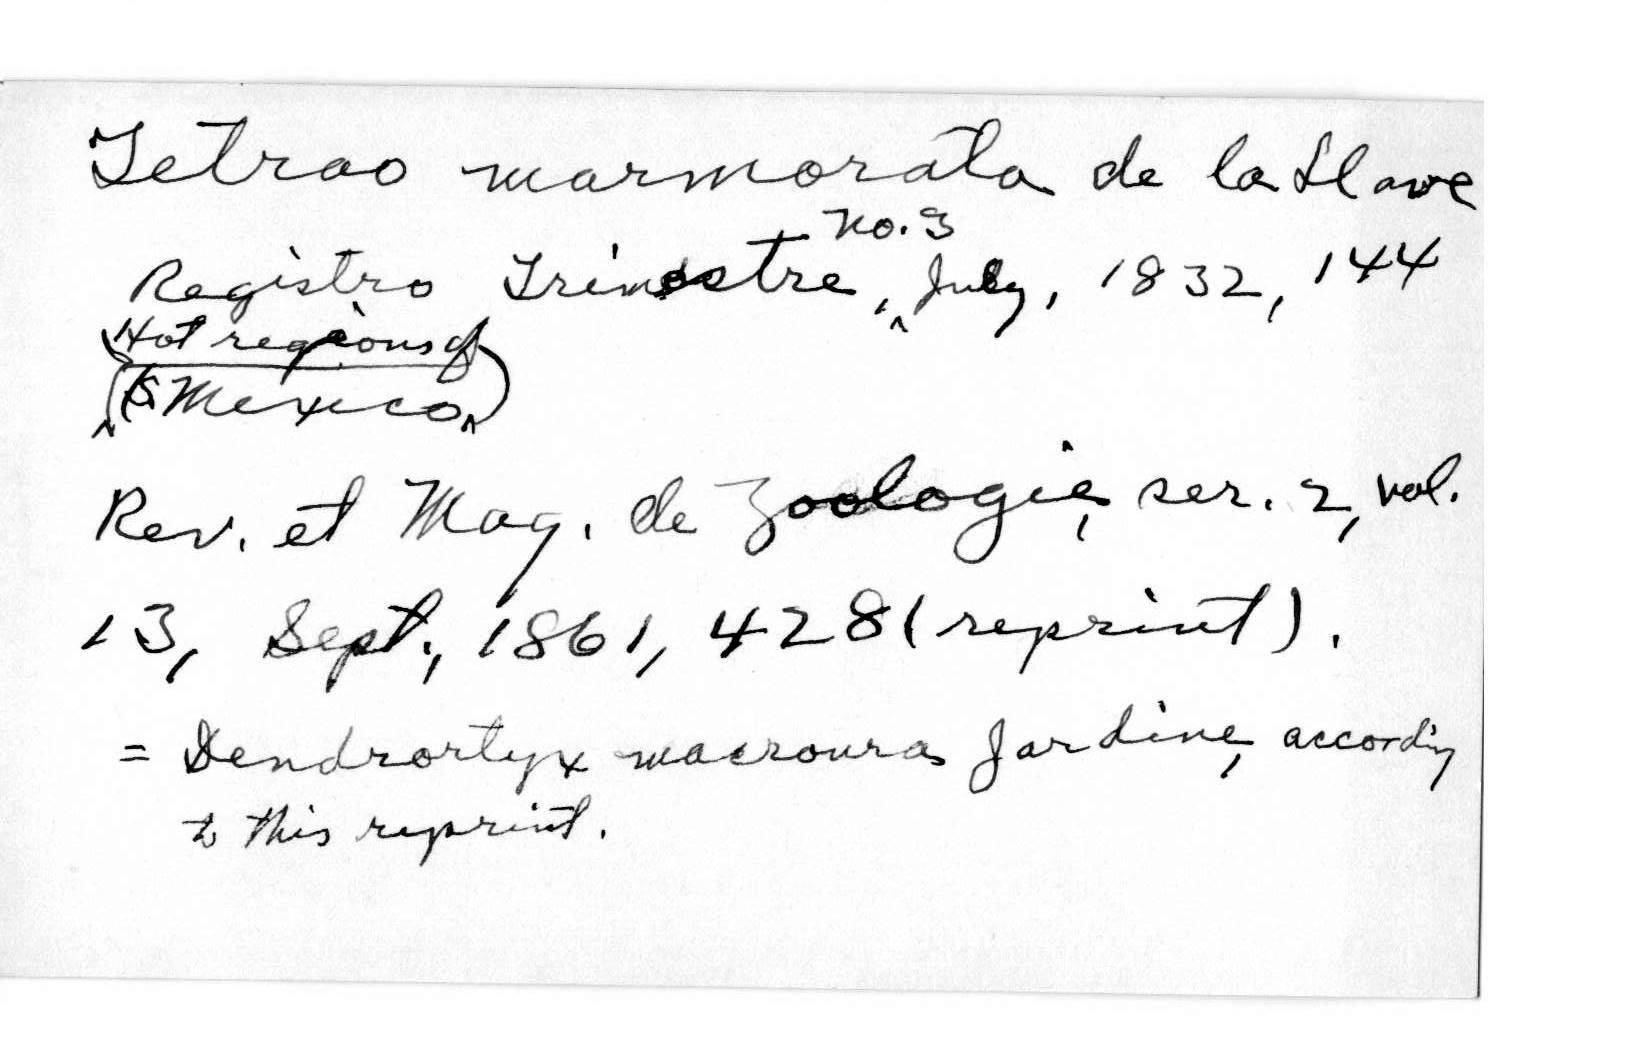 Tetrao marmorata de la Llave
Registro Trimestre, No. 3 July, 1832, 144
(Hot regions of
Mexico)
Rev. et Mag. de Zoologie, ser. 2, vol.
13, Sept., 1861, 428 (reprint).
= Dendrortyx macroura Jardine, according
to this reprint.